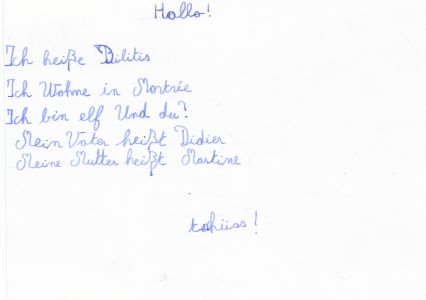 Hallo!
Ich heiße Dilitis
Ich Wohne in Mortrée
Ich bin elf Und du?
Mein Vater heißt Didier
Meine Mutter heißt Martine
tschüss!